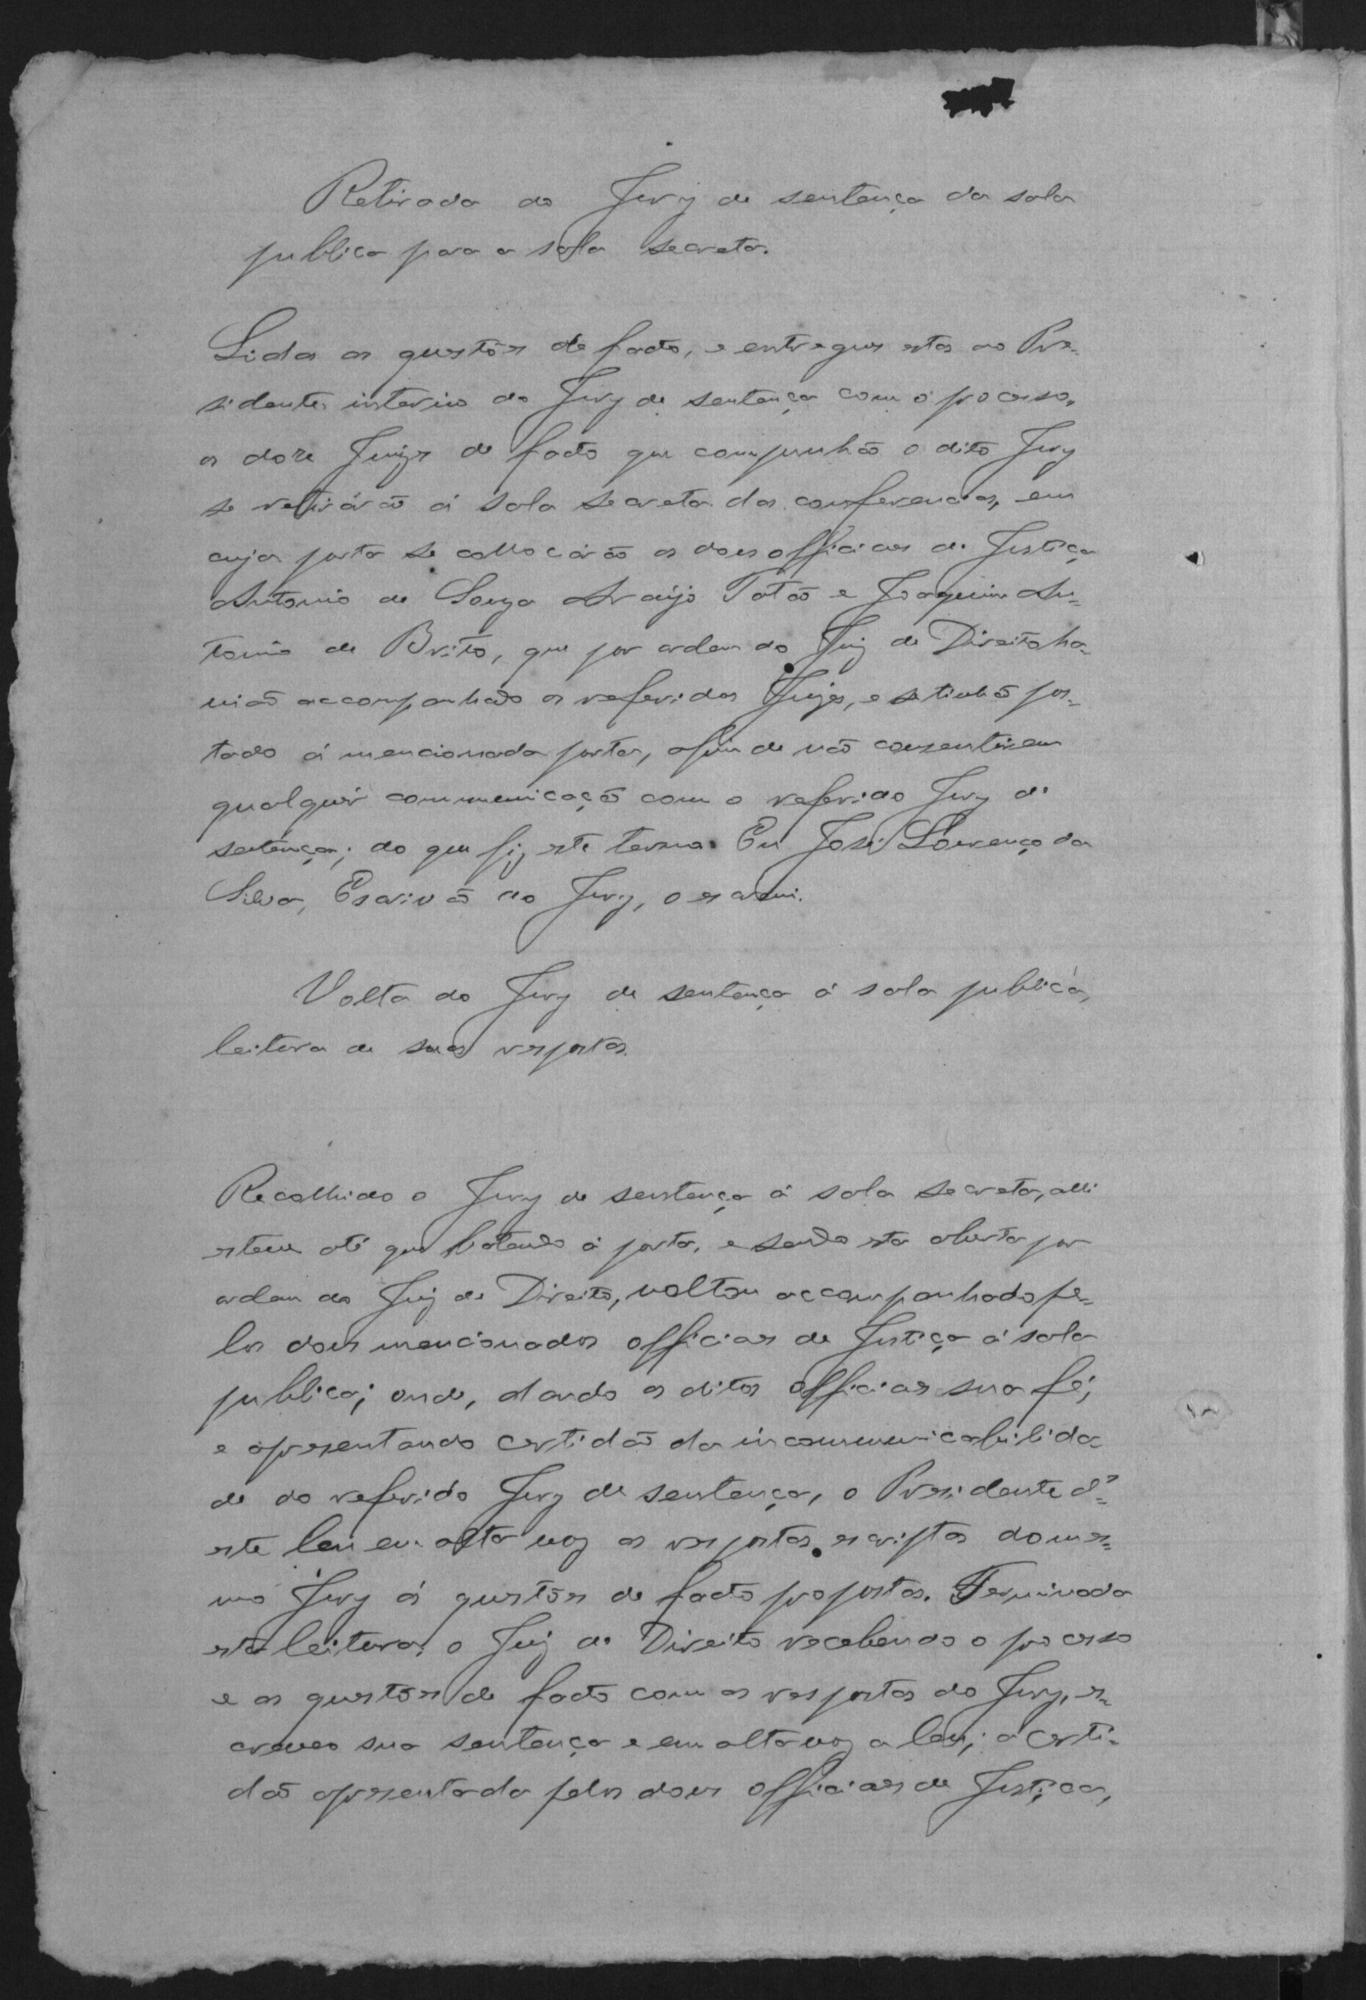 Retirada do Jury de sentença da sala
publica para a sala secreta.
Lidas as questões de facto, e entregues estas ao Pre-
sidente interino do Jury de sentença com o processo,
os doze Juizes de facto que compunhão o dito Jury
se retirárão á sala secreta das conferencias, em
cuja porta se collocárão os dous officiaes de Justiça
Antonio de Souza Araújo Tatão e Joaquim An-
tonio de Brito, que por ordem do Juiz de Direito ha-
vião accompanhado os referidos Juizes, e se tinhão pos-
tado á mencionada porta, afim de não consentirem
qualquér communicação com o referido Jury de
sentença; do que fiz este termo. Eu José Lourenço da
Silva, Escrivão do Jury, o escrevi.
Volta do Jury de sentença á sala publica,
leitura de suas respostas.
Recolhido o Jury de sentença á sala secreta, alli
esteve até que batendo á porta, e sendo esta aberta por
ordem do Juiz de Direito, voltou accompanhado pe-
los dous mencionados officiaes de Justiça á sala
publica; onde, dando os ditos officiaes sua fé,
e apresentando certidão da incommunicabilida-
de do referido Jury de sentença, o Presidente d'-
este leu em alta voz as respostas escriptas do mes-
mo Jury ás questões de facto propostas. Terminada
esta leitura, o Juiz de Direito recebendo o processo
e as questões de facto com as respostas do Jury, es-
creveo sua sentença e em alta voz a leu; a certi-
dão apresentada pelos dous officiaes de Justiça,